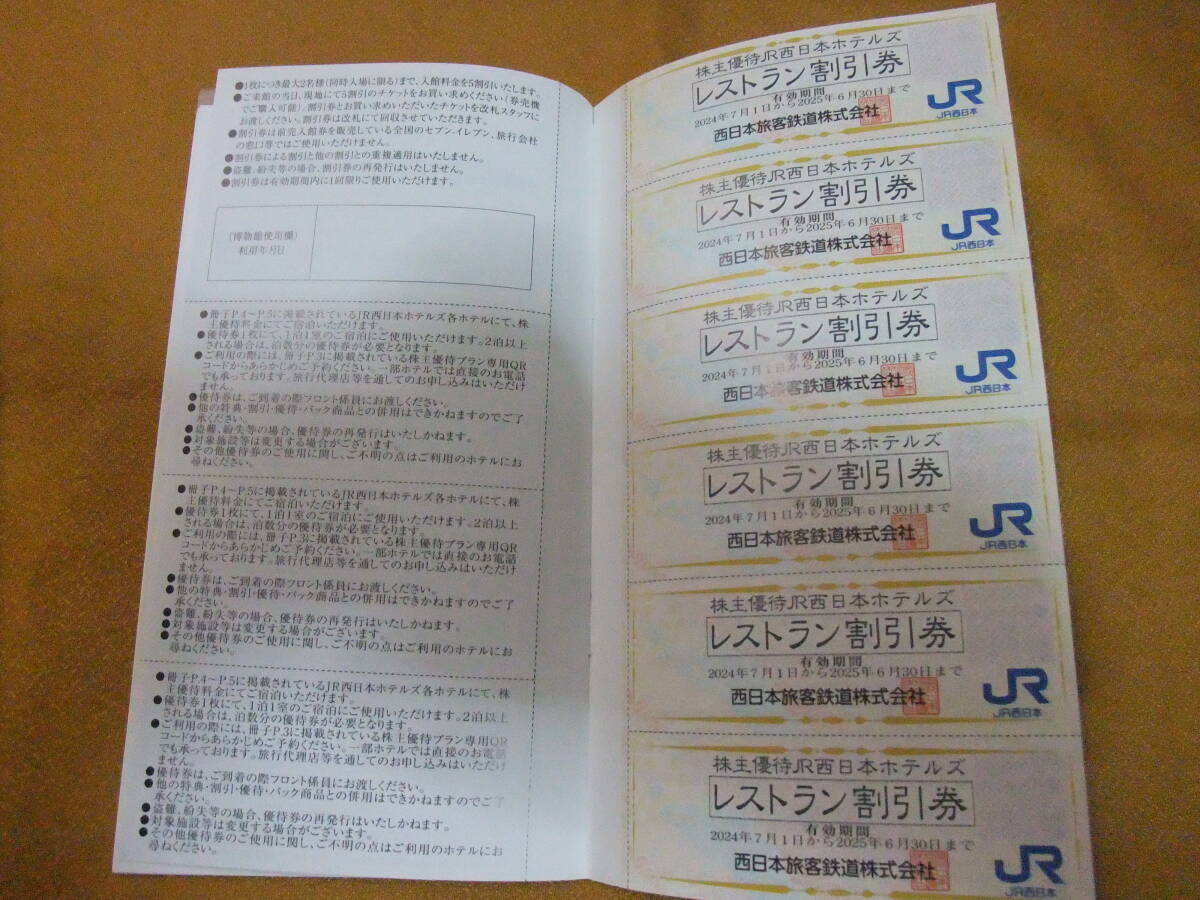 ●1枚につき最大2名様(同時入場に限る)まで、入館料金を5割引いたします。
●ご来館の当日、現地にて5割引のチケットをお買い求めください(券売機
でご購入可能)。割引券とお買い求めいただいたチケットを改札スタッフに
お渡しください。割引券は改札にて回収させていただきます。
●割引券は前売入館券を販売している全国のセブン-イレブン、旅行会社
の窓口等ではご使用いただけません。
●割引券による割引と他の割引との重複適用はいたしません。
●盗難、紛失等の場合、割引券の再発行はいたしません。
●割引券は有効期間内に1回限りご使用いただけます。
(博物館使用欄)
利用年月日
●冊子P.4~P.5に掲載されているJR西日本ホテルズ各ホテルにて、株
主優待料金にてご宿泊いただけます。
●優待券1枚にて、1泊1室のご宿泊にご使用いただけます。2泊以上
される場合は、泊数分の優待券が必要となります。
●ご利用の際には、冊子P.3に掲載されている株主優待プラン専用QR
コードからあらかじめご予約ください。一部ホテルでは直接のお電話
でも承っております。旅行代理店等を通してのお申し込みはいただけ
ません。
●優待券は、ご到着の際フロント係員にお渡しください。
●他の特典・割引・優待・パック商品との併用はできかねますのでご了
承ください。
●盗難、紛失等の場合、優待券の再発行はいたしかねます。
●対象施設等は変更する場合がございます。
●その他優待券のご使用に関し、ご不明の点はご利用のホテルにお
尋ねください。
●冊子P.4~P.5に掲載されているJR西日本ホテルズ各ホテルにて、株
主優待料金にてご宿泊いただけます。
●優待券1枚にて、1泊1室のご宿泊にご使用いただけます。2泊以上
される場合は、泊数分の優待券が必要となります。
●ご利用の際には、冊子P.3に掲載されている株主優待プラン専用QR
コードからあらかじめご予約ください。一部ホテルでは直接のお電話
でも承っております。旅行代理店等を通してのお申し込みはいただけ
ません。
●優待券は、ご到着の際フロント係員にお渡しください。
●他の特典・割引・優待・パック商品との併用はできかねますのでご了
承ください。
●盗難、紛失等の場合、優待券の再発行はいたしかねます。
●対象施設等は変更する場合がございます。
●その他優待券のご使用に関し、ご不明の点はご利用のホテルにお
尋ねください。
●冊子P.4~P.5に掲載されているJR西日本ホテルズ各ホテルにて、株
主優待料金にてご宿泊いただけます。
●優待券1枚にて、1泊1室のご宿泊にご使用いただけます。2泊以上
される場合は、泊数分の優待券が必要となります。
●ご利用の際には、冊子P.3に掲載されている株主優待プラン専用QR
コードからあらかじめご予約ください。一部ホテルでは直接のお電話
でも承っております。旅行代理店等を通してのお申し込みはいただけ
ません。
●優待券は、ご到着の際フロント係員にお渡しください。
●他の特典・割引・優待・パック商品との併用はできかねますのでご了
承ください。
●盗難、紛失等の場合、優待券の再発行はいたしかねます。
●対象施設等は変更する場合がございます。
●その他優待券のご使用に関し、ご不明の点はご利用のホテルにお
尋ねください。
株主優待JR西日本ホテルズ
レストラン割引券
有効期間
2024年7月1日から2025年6月30日まで
西日本旅客鉄道株式会社
JR
JR西日本
株主優待JR西日本ホテルズ
レストラン割引券
有効期間
2024年7月1日から2025年6月30日まで
西日本旅客鉄道株式会社
JR
JR西日本
株主優待JR西日本ホテルズ
レストラン割引券
有効期間
2024年7月1日から2025年6月30日まで
西日本旅客鉄道株式会社
JR
JR西日本
株主優待JR西日本ホテルズ
レストラン割引券
有効期間
2024年7月1日から2025年6月30日まで
西日本旅客鉄道株式会社
JR
JR西日本
株主優待JR西日本ホテルズ
レストラン割引券
有効期間
2024年7月1日から2025年6月30日まで
西日本旅客鉄道株式会社
JR
JR西日本
株主優待JR西日本ホテルズ
レストラン割引券
有効期間
2024年7月1日から2025年6月30日まで
西日本旅客鉄道株式会社
JR
JR西日本